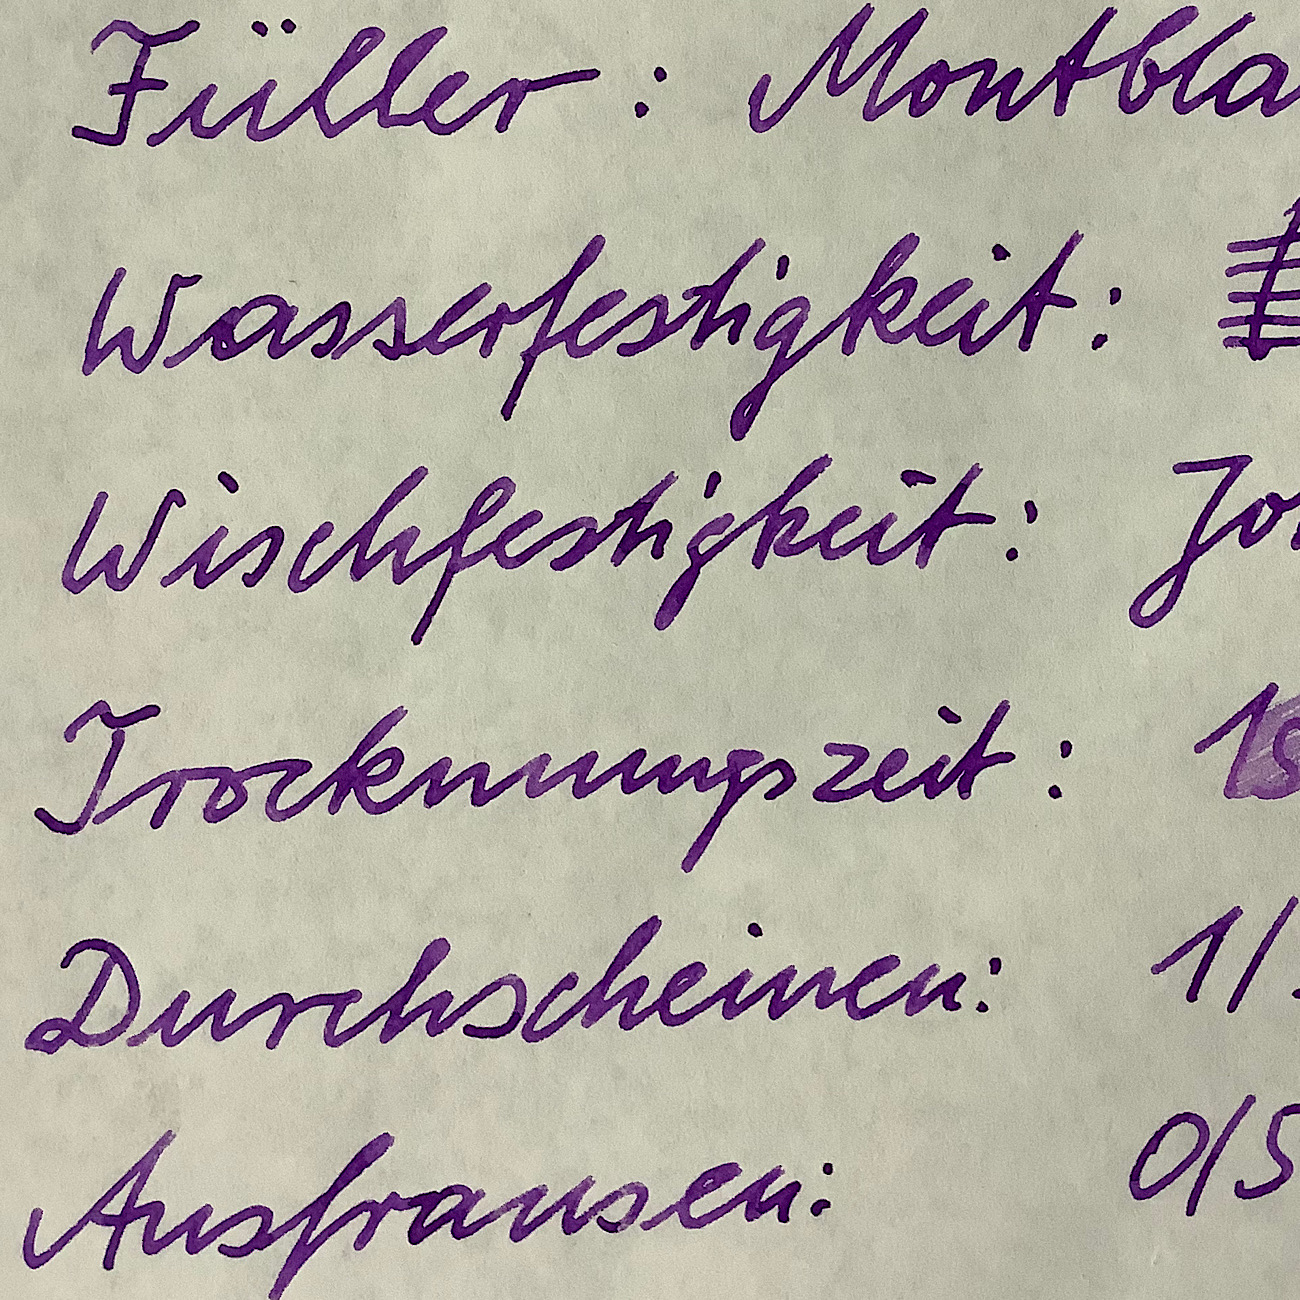 Füller: Montbla
Wasserfestigkeit:
Wischfestigkeit: Jo
Trocknungszeit: 1s
Durchscheinen: 1/
Ausfransen: 0/5